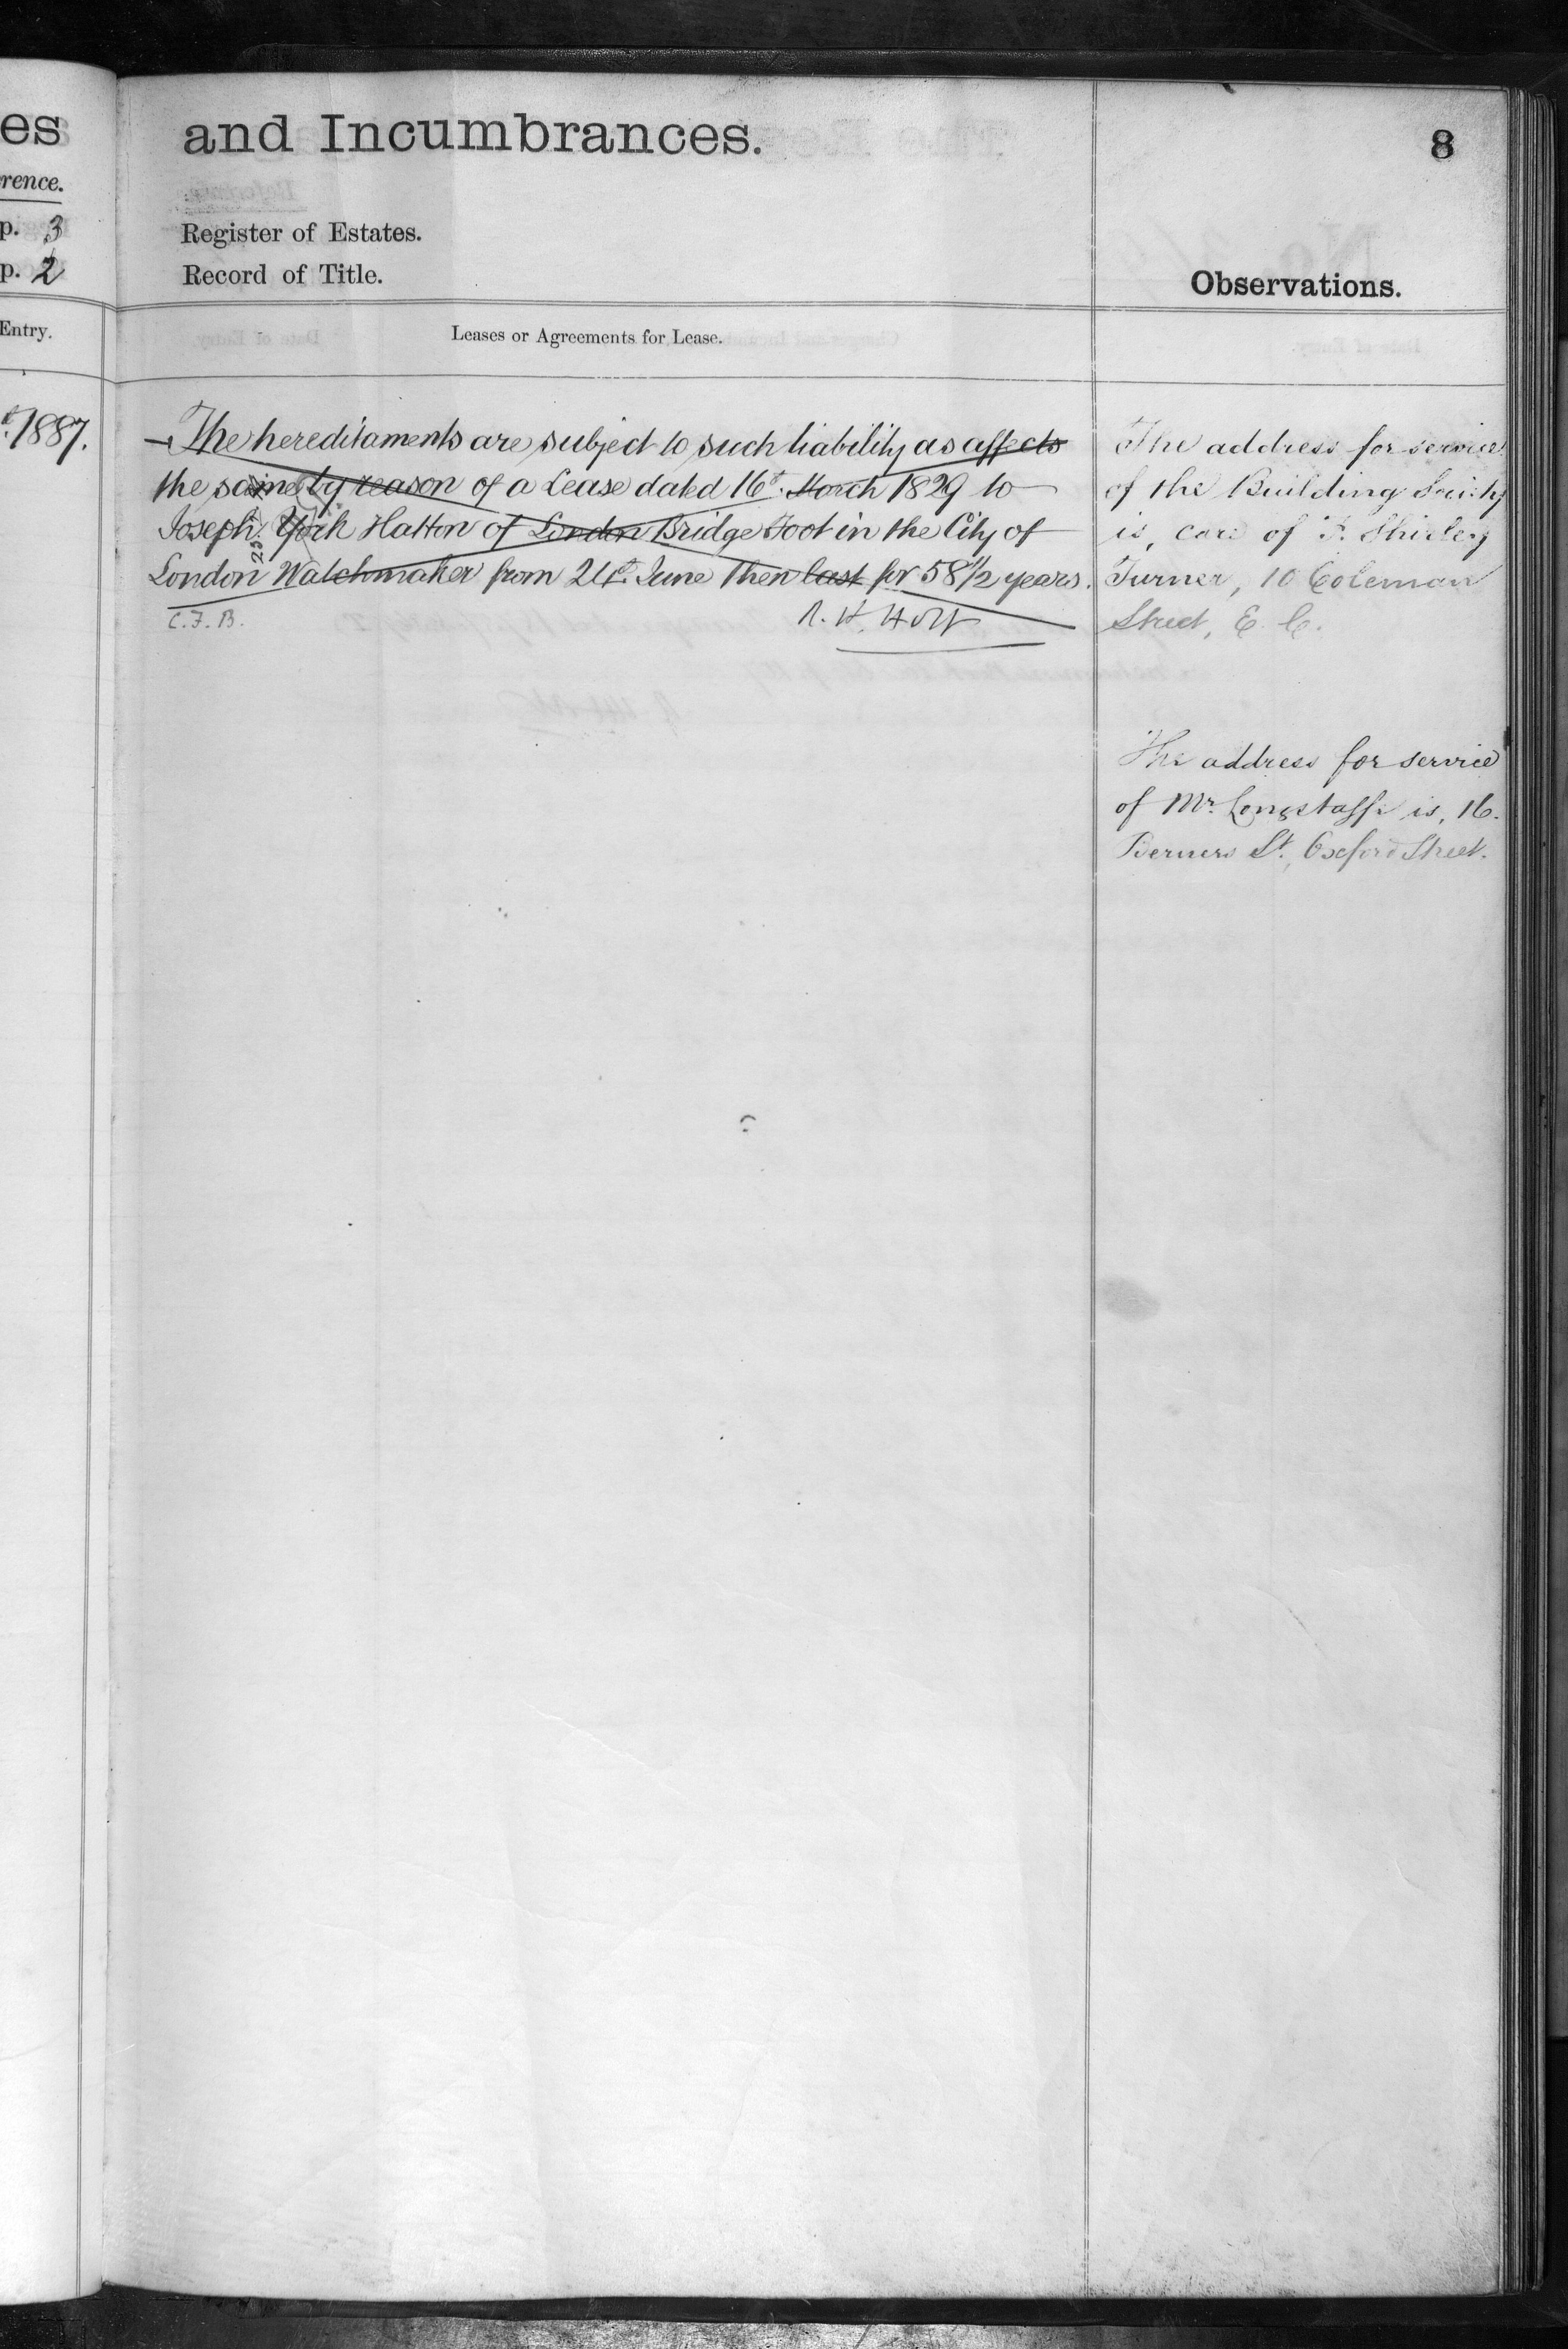 es
rence.
p. 3
p. 2
Entry.
1887.
and Incumbrances.
8
Register of Estates.
Record of Title.
Observations.
Leases or Agreements for Lease.
The hereditaments are subject to such liability as affects
the same by reason of a Lease dated 16th March 1829 to
Joseph York Hatton of London Bridge Foot in the City of
London Watchmaker from 24th June then last for 58 1/2 years.
C. F. B.
R. H. Holt
The address for service
of the Building Society
is, care of F. Shirley
Turner, 10 Coleman
Street, E. C.
The address for service
of Mr. Longstaffe is, 16.
Berners St., Oxford Street.